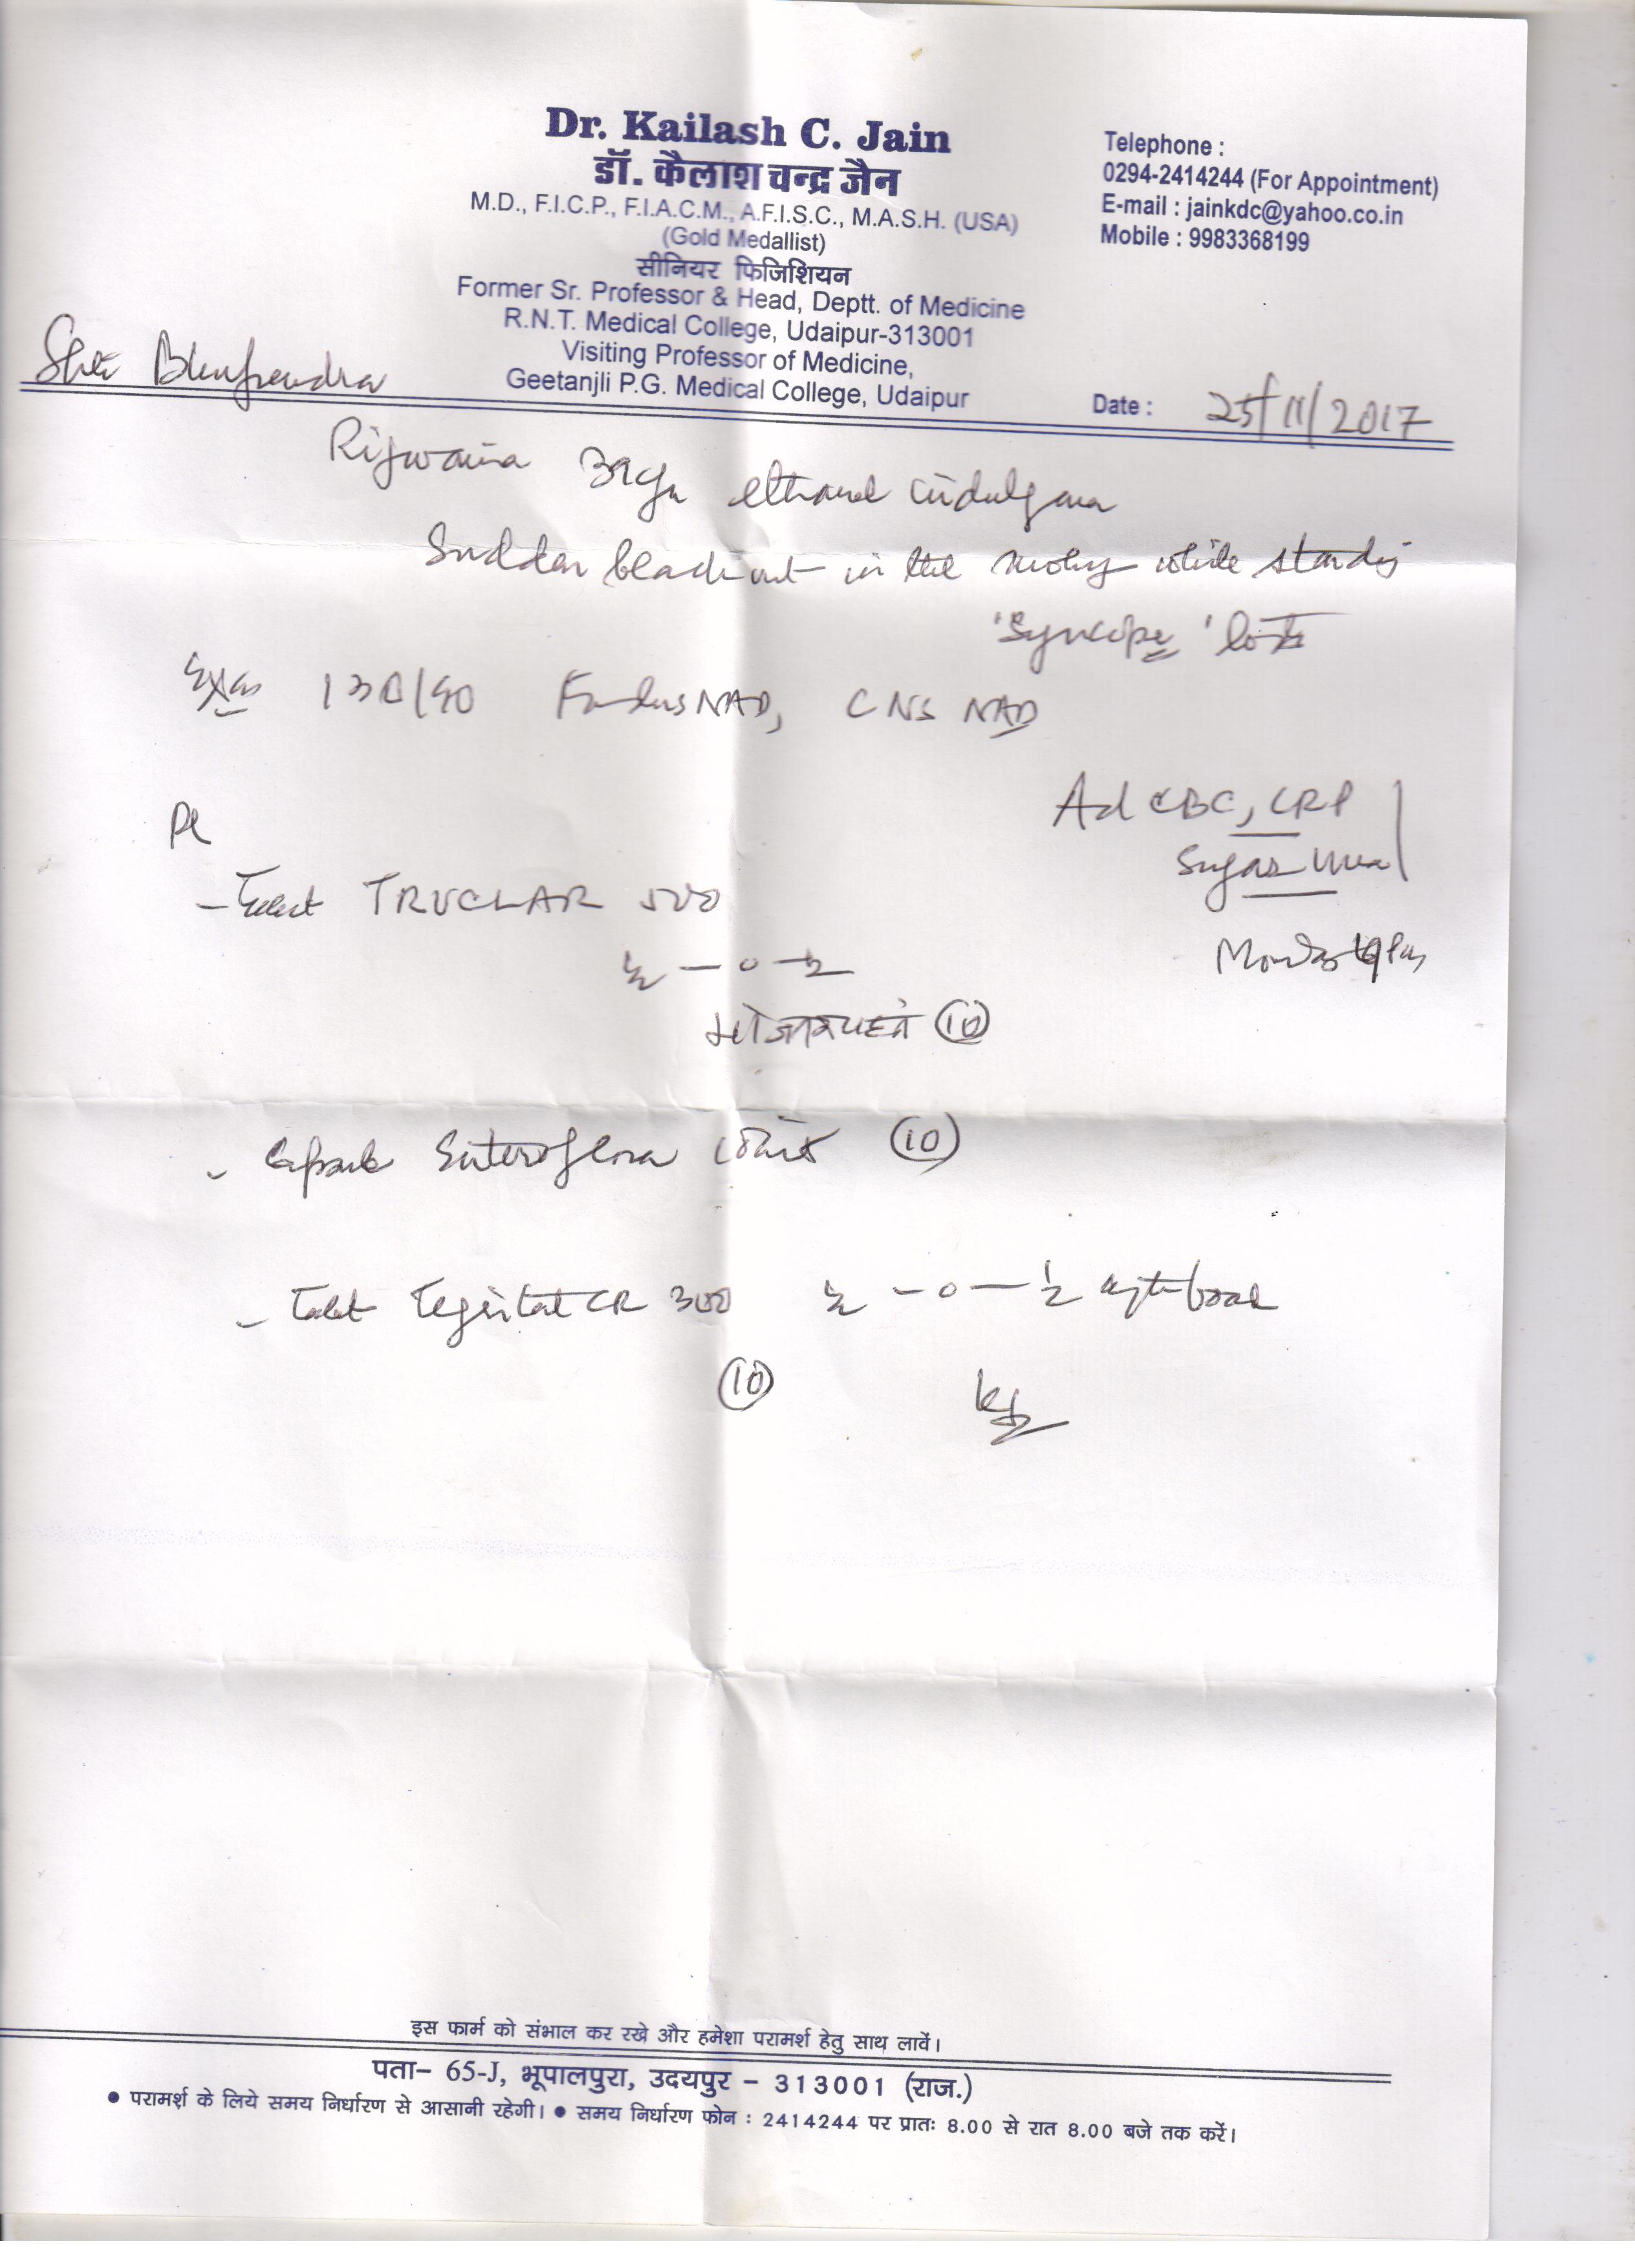 Dr. Kailash C. Jain
डॉ. कैलाश चन्द्र जैन
M.D., F.I.C.P., F.I.A.C.M., A.F.I.S.C., M.A.S.H. (USA)
(Gold Medallist)
सीनियर फिजिशियन
Former Sr. Professor & Head, Deptt. of Medicine
R.N.T. Medical College, Udaipur-313001
Visiting Professor of Medicine,
Geetanjli P.G. Medical College, Udaipur
Telephone :
0294-2414244 (For Appointment)
E-mail : jainkdc@yahoo.co.in
Mobile : 9983368199
Bhupendra
Date : 25/11/2017
ethanol
Sudden blackout in the while standing
'Syncope'
Fundus NAD, CNS NAD
Ad CBC, CRP
Sugar
Tablet TRUCLAR 500
½ — 0 — ½
(10)
- Capsule Enteroflora (10)
- Tablet Tegrital CR 300 ½ — 0 — ½
(10)
इस फार्म को संभाल कर रखे और हमेशा परामर्श हेतु साथ लावें।
पता– 65-J, भूपालपुरा, उदयपुर – 313001 (राज.)
● परामर्श के लिये समय निर्धारण से आसानी रहेगी। ● समय निर्धारण फोन : 2414244 पर प्रातः 8.00 से रात 8.00 बजे तक करें।